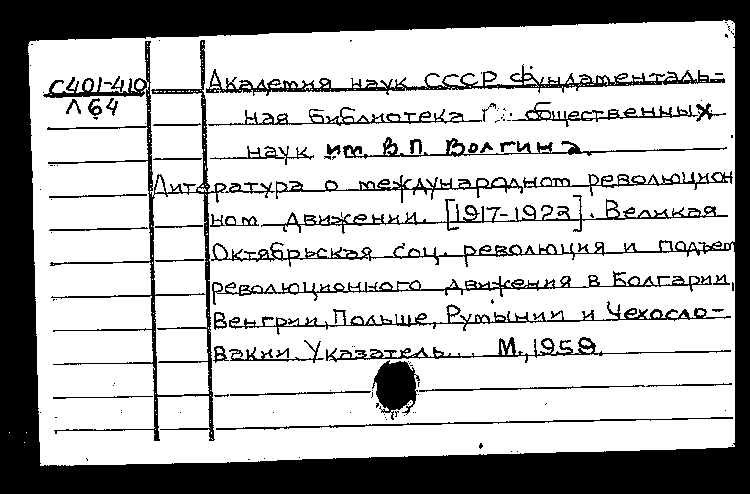 С401-410
Л64
Академия наук СССР Фундаменталь-
ная библиотека общественных
наук им. В.П. Волгина.
Литература о международном революцион
ном движении. [1917-1922]. Великая
Октябрьская соц. революция и подъем
революционного движения в Болгарии,
Венгрии, Польше, Румынии и Чехосло-
вакии. Указатель... М., 1959.